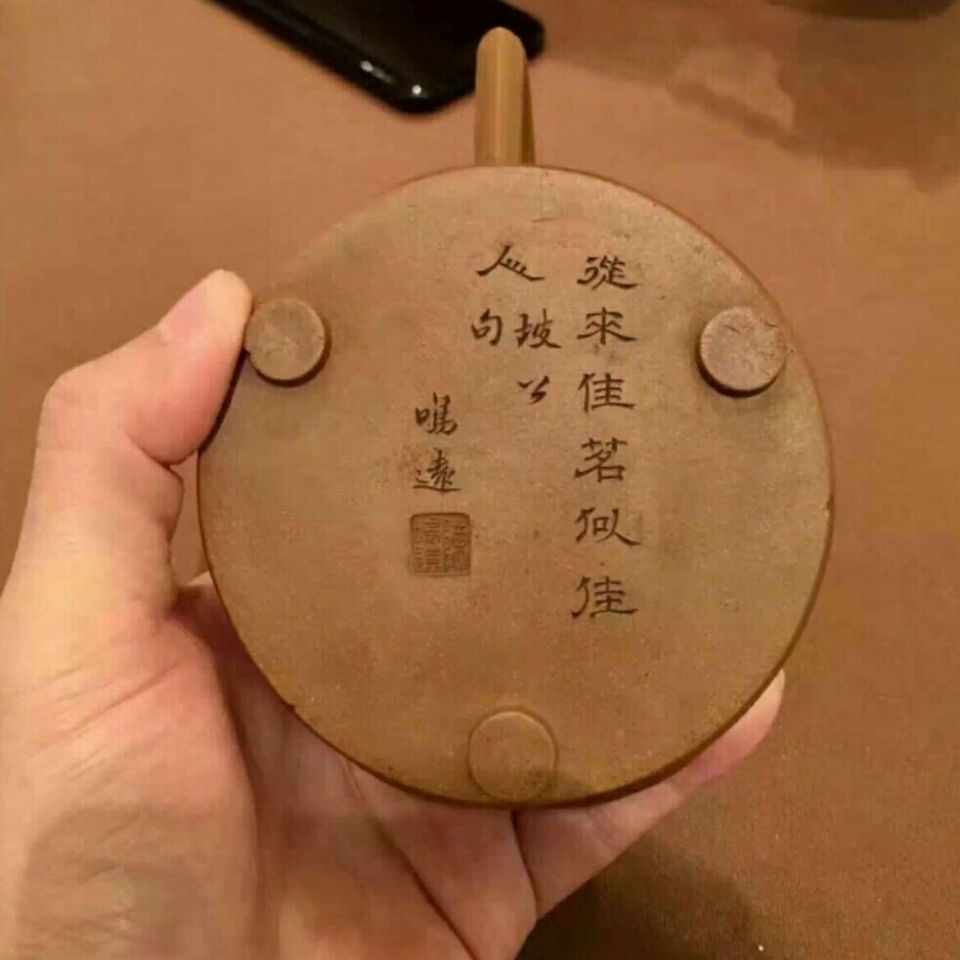 從來佳茗似佳
人
坡公
句
鳴遠